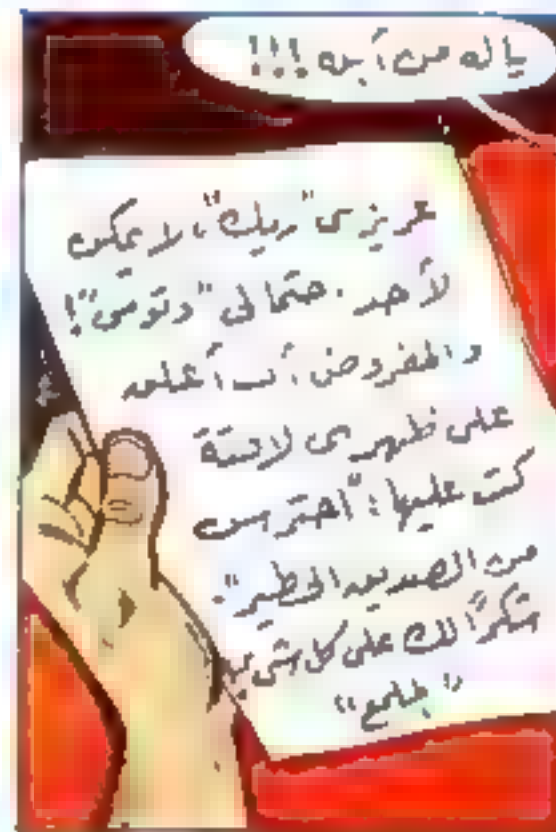 يا له من أبله !!!
عزيزى "ريك"، لا يمكن
لأحد. حتما لى "وتومى"!
والمفروض أن أعلق
على ظهرى لافتة
كتب عليها: "احترس
من الصديق الخطير".
شكرًا لك على كل شىء